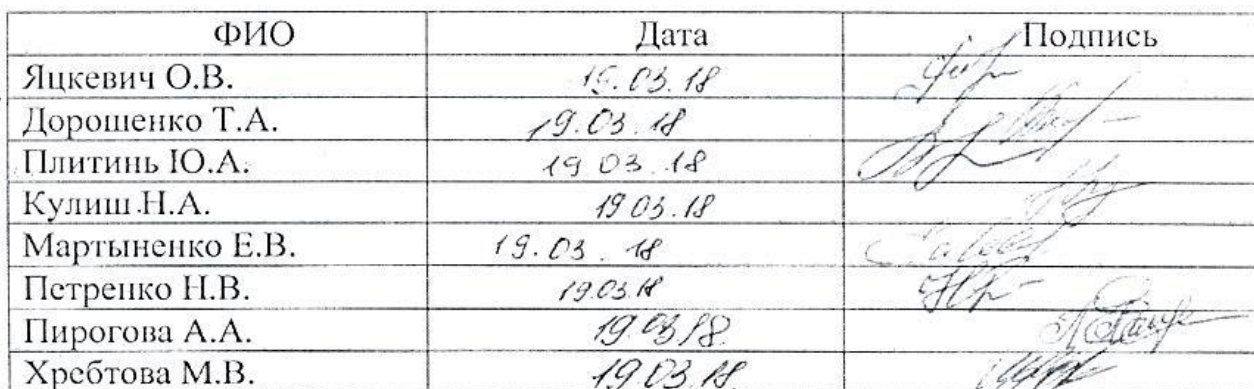 ФИО Дата Подпись
Яцкевич О.В. 19.03.18
Дорошенко Т.А. 19.03.18
Плитинь Ю.А. 19 03.18
Кулиш Н.А. 19 03.18
Мартыненко Е.В. 19.03.18
Петренко Н.В. 19.03.18
Пирогова А.А. 19.03.18
Хребтова М.В. 19.03.18